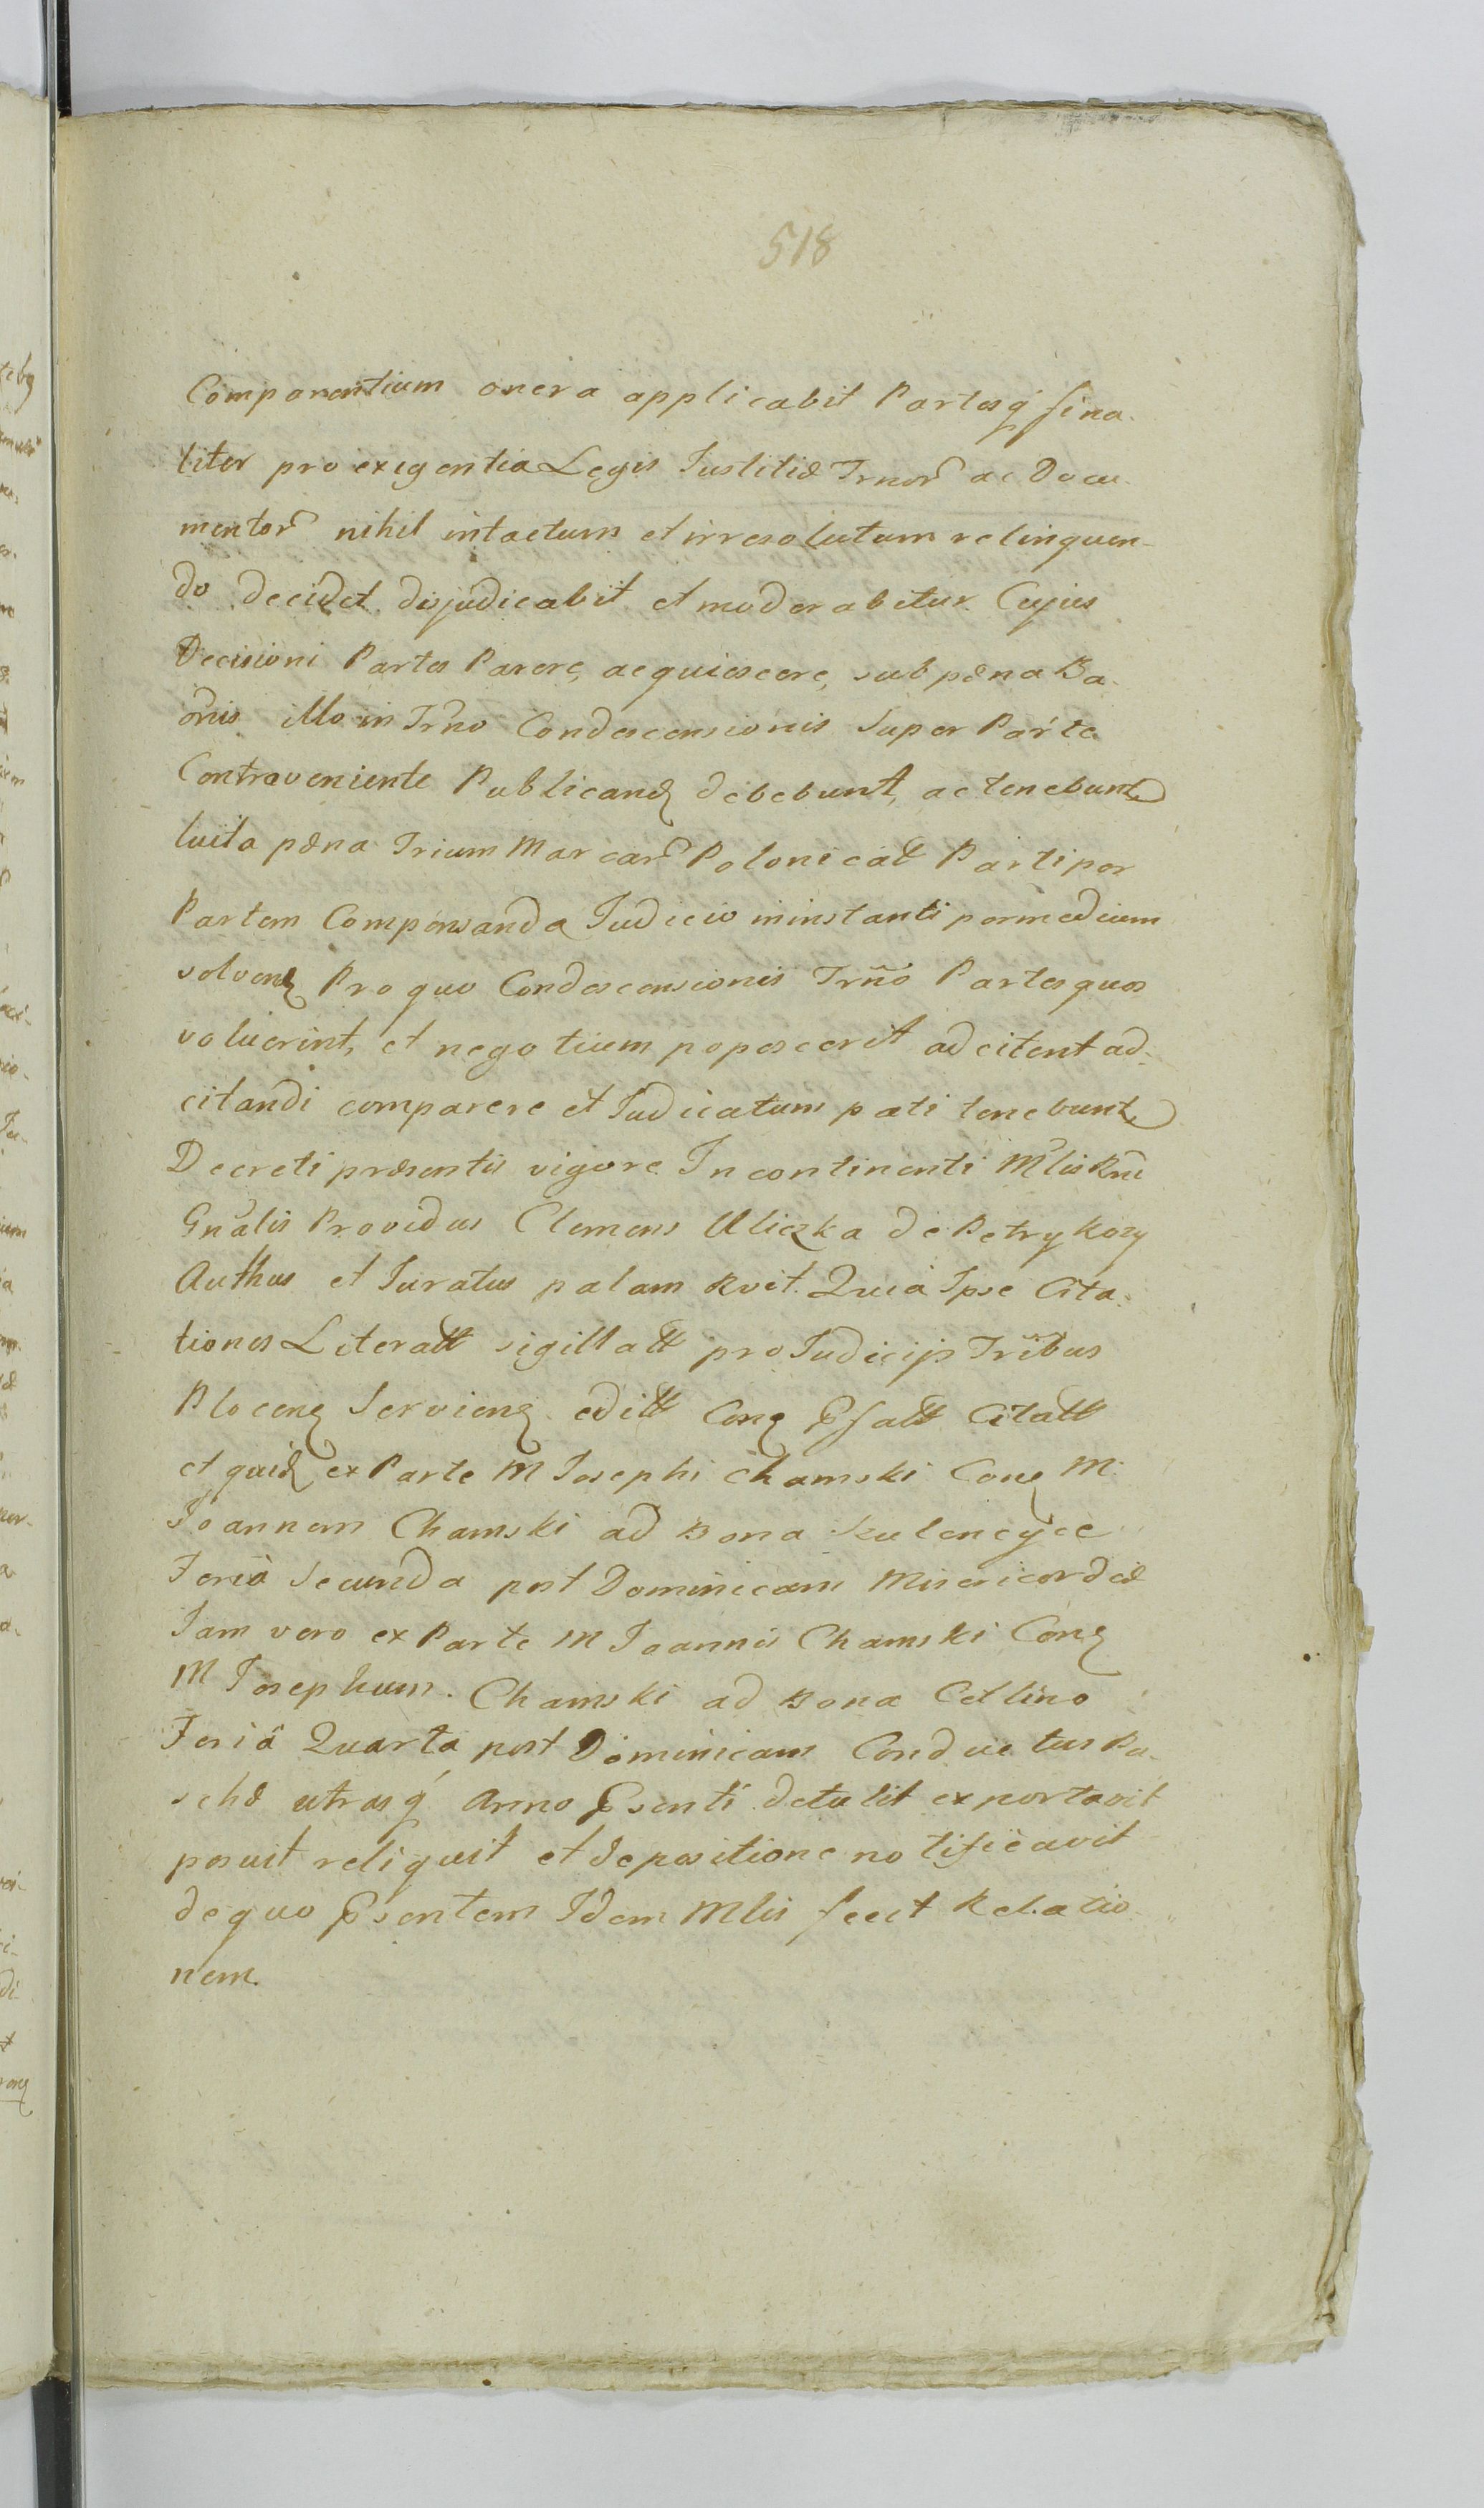 518
Comparentium onera applicabit Partesq́ fina-
liter pro exigentia Legis Justitiæ Trnor̃ ac Docu-
mentor̃ nihil intactum et irresolutum relinquen-
do decidet dijudicabit et moderabitur Cujus
Decisioni Partes Parere, acquiescere, sub pæna Ba-
õnis illo in Trño Condescensionis super Parte
Contraveniente Publicanđ debebunt, ac tenebunt̃
luita pæna Trium Marcar̃ Polonical̃ Parti per
Partem Compensanda Judicio in instanti permedium
solvenđ Pro quo Condescensionis Trño Partes quos
voluerint, et negotium poposcerit adcitent ad-
citandi comparere et Judicatum pati tenebunt̃
Decreti præsentis vigore Incontinenti Mlis Rni
Gnalis Providus Clemens Uliczka de Petrykozy
Authus et Juratus palam rvit. Quia Ipse Cita-
tiones Literatt sigillatt pro Judicijs Tribus
Plocenȩ Servienȩ editt Conȩ Psatt Citatt
et quiđ ex Parte M Josephi Chamski Conȩ M.
Joannem Chamski ad Bona Kulencyce
Feria Secunda post Dominicam Misericordiæ
Jam vero ex Parte M Joannis Chamski Conȩ
M Josephum. Chamski ad Bona Cetlino
Feriâ Quarta post Dominicam Conductus Pa-
schæ utrasq́ Anno Psenti detulit exportavit
posuit reliquit et depositione notificavit
de quo Psentem Idem Mlis fecit Relatio-
nem.